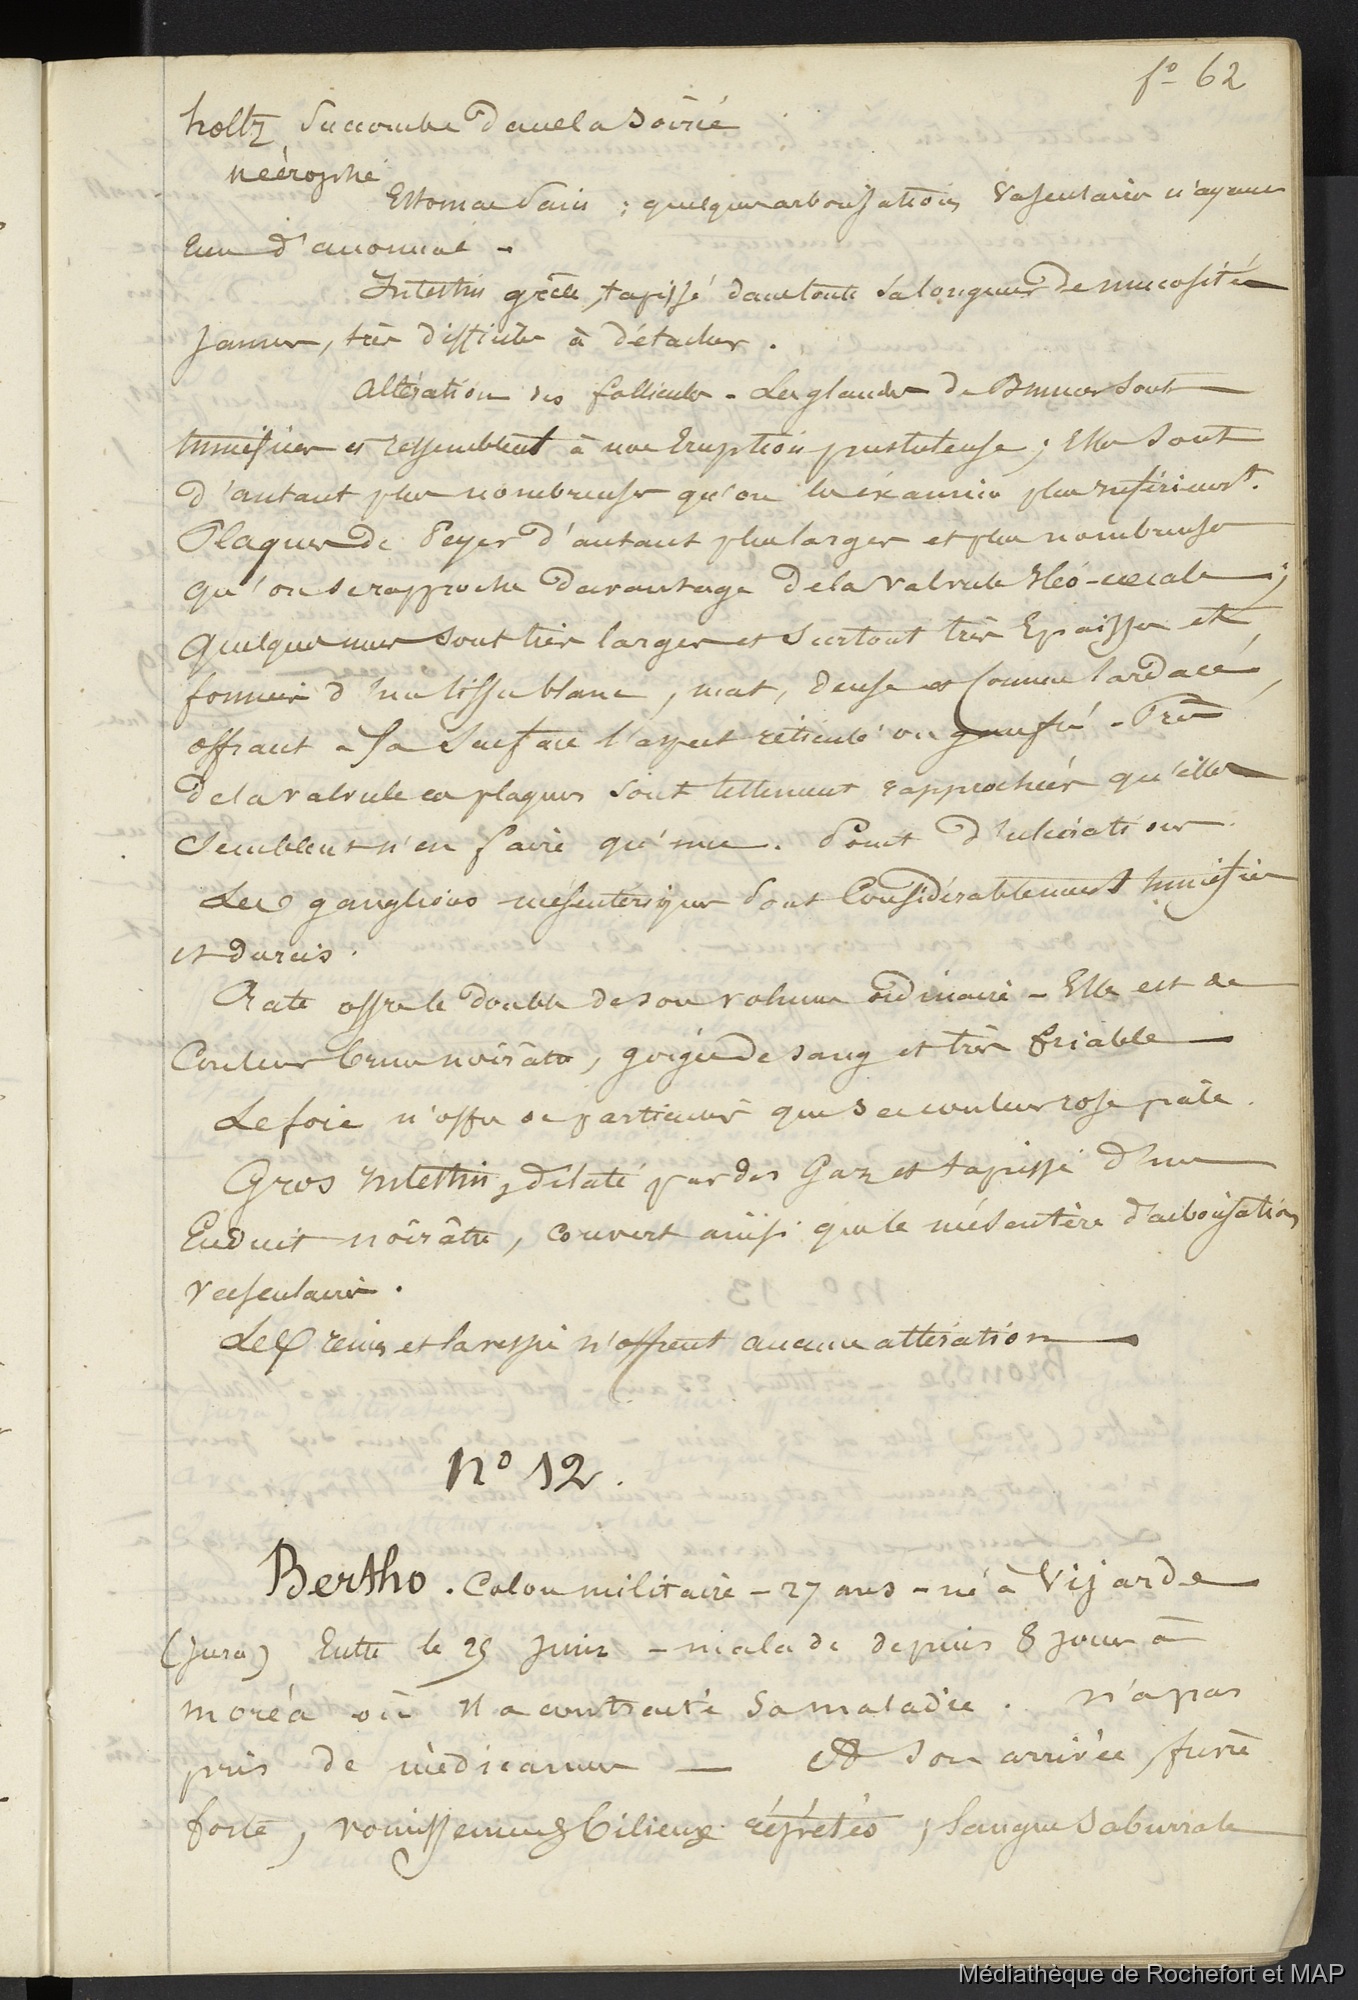 fo 62
holtz succombe dans la soirée
nécropsie
Estomac sain ; quelques arborisations vasculaires n'ayant
rien d'anormal -
Intestin grêle, tapissé dans toute sa longueur de mucosités
jaunes, très difficiles à détacher.
Altération des follicules - Les glandes de Brunner sont
tuméfiées et ressemblent à une Eruption pustuleuse ; Elles sont
d'autant plus nombreuses qu'on les examine plus inférieurt.
Plaques de Peyer d'autant plus larges et plus nombreuses
qu'on se rapproche davantage de la valvule Iléo-cœcale ;
quelques unes sont très larges et surtout très Epaisses et
formées d'un tissu blanc, mat, dense et comme lardacé,
offrant à sa surface l'aspect réticulé ou gauffré - Près
de la valvule ces plaques sont tellement rapprochées qu'elles
semblent n'en faire qu'une. Point d'ulcérations.
Les ganglions mésentériques sont Considérablement tuméfiés
et durcis.
Rate offre le double de son volume ordinaire - Elle est de
Couleur brun noirâtre, gorgée de sang et très friable
Le foie n'offre de particulier que sa couleur rose pâle.
Gros Intestin, dilaté par des Gaz et tapissé d'un
Enduit noirâtre, couvert ainsi que le mésentère d'arborisations
vasculaires.
Les reins et la vessie n'offrent aucune altération
No 12.
Bertho. Colon militaire - 27 ans - né à Vijarde
(Jura) Entre le 25 juin - malade depuis 8 jours à
moréa où il a contracté sa maladie. n'a pas
pris de médicamens — A son arrivée, fièvre
forte, vomissemens bilieux répétés, langue saburrale
Médiathèque de Rochefort et MAP